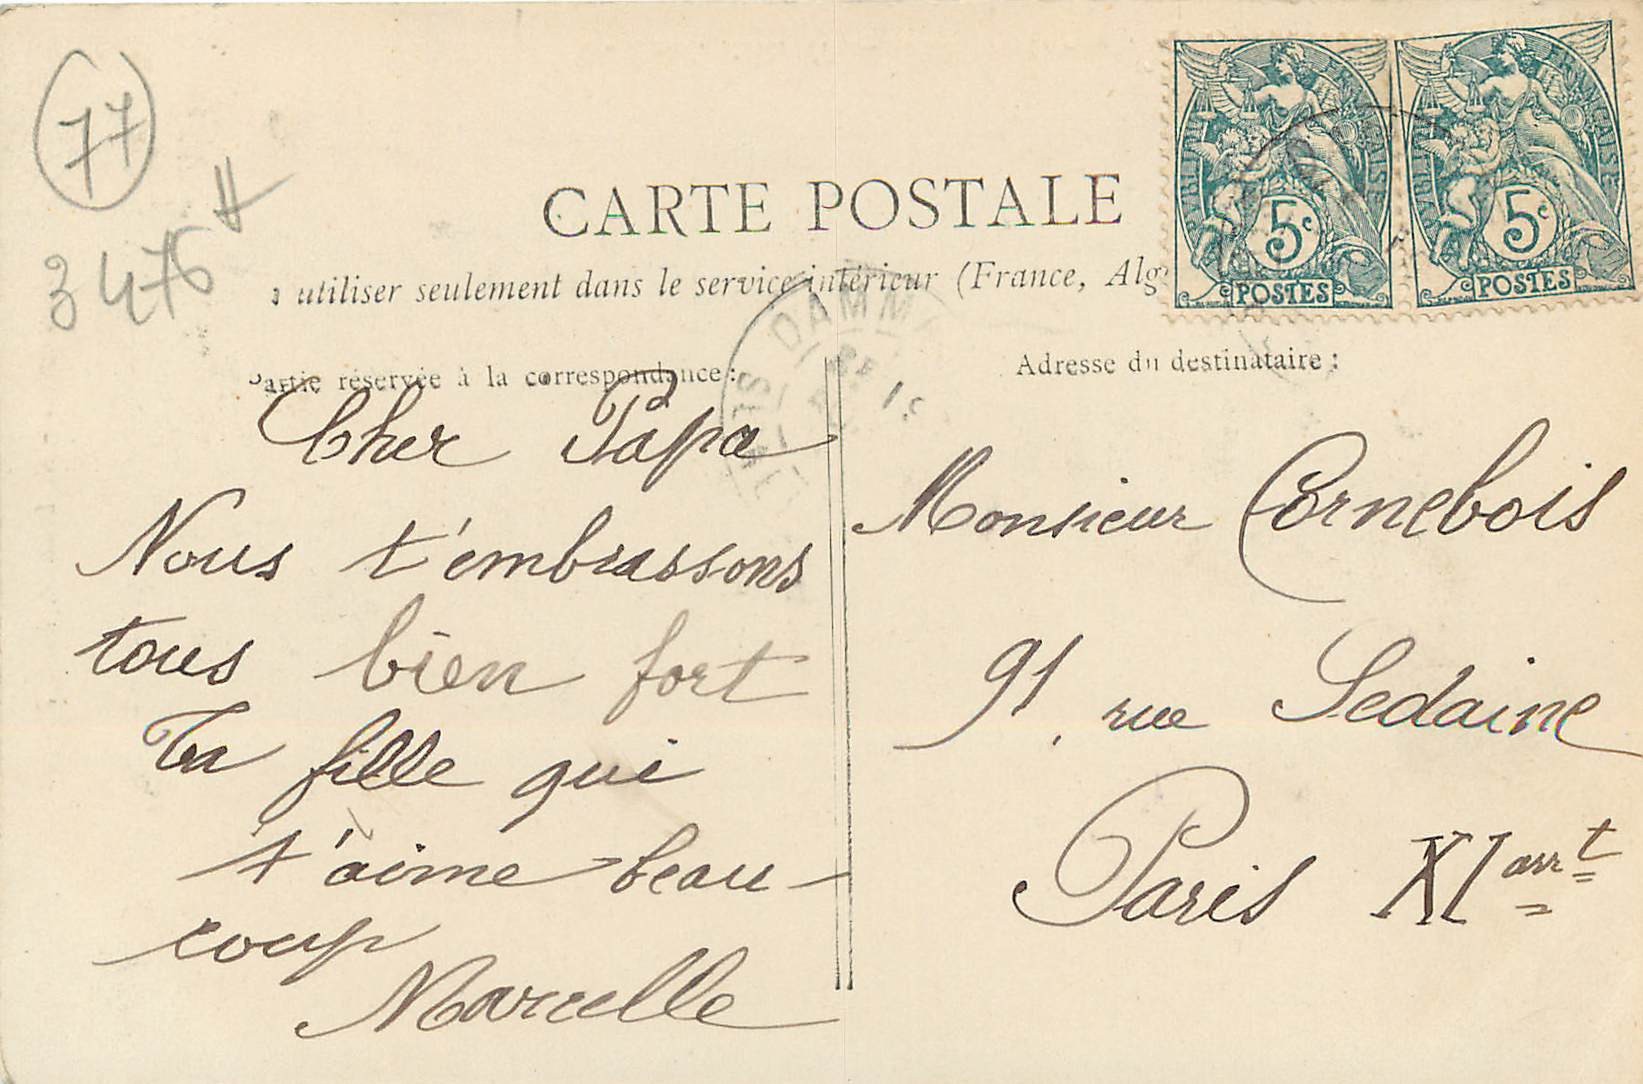 77
3476
CARTE POSTALE
utiliser seulement dans le service intérieur (France, Alg
RÉPUBLIQUE FRANÇAISE
5c
POSTES
RÉPUBLIQUE FRANÇAISE
5c
POSTES
DAMMA
Partie réservée à la correspondance :
Cher Papa
Nous t'embrassons
tous bien fort
Ta fille qui
t'aime beau-
coup
Marcelle
Adresse du destinataire :
Monsieur Cornebois
91, rue Sedaine
Paris XI arrt